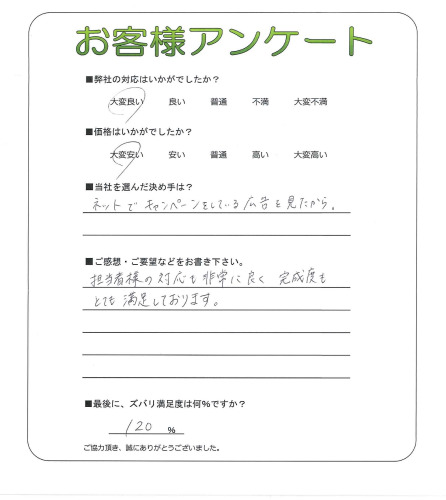 お客様アンケート
■弊社の対応はいかがでしたか?
大変良い 良い 普通 不満 大変不満
■価格はいかがでしたか?
大変安い 安い 普通 高い 大変高い
■当社を選んだ決め手は?
ネットでキャンペーンをしている広告を見たから。
■ご感想・ご要望などをお書き下さい。
担当者様の対応も非常に良く 完成度も
とても満足しております。
■最後に、ズバリ満足度は何%ですか?
120 %
ご協力頂き、誠にありがとうございました。